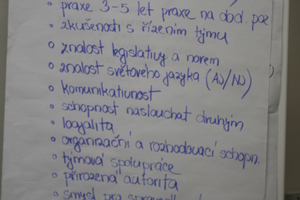 praxe 3-5 let praxe na dod. poz
zkušenosti s řízením týmu
znalost legislativy a norem
znalost světového jazyka (AJ/NJ)
komunikativnost
schopnost naslouchat druhým
loajalita
organizační a rozhodovací schopn.
týmová spolupráce
přirozená autorita
smysl pro